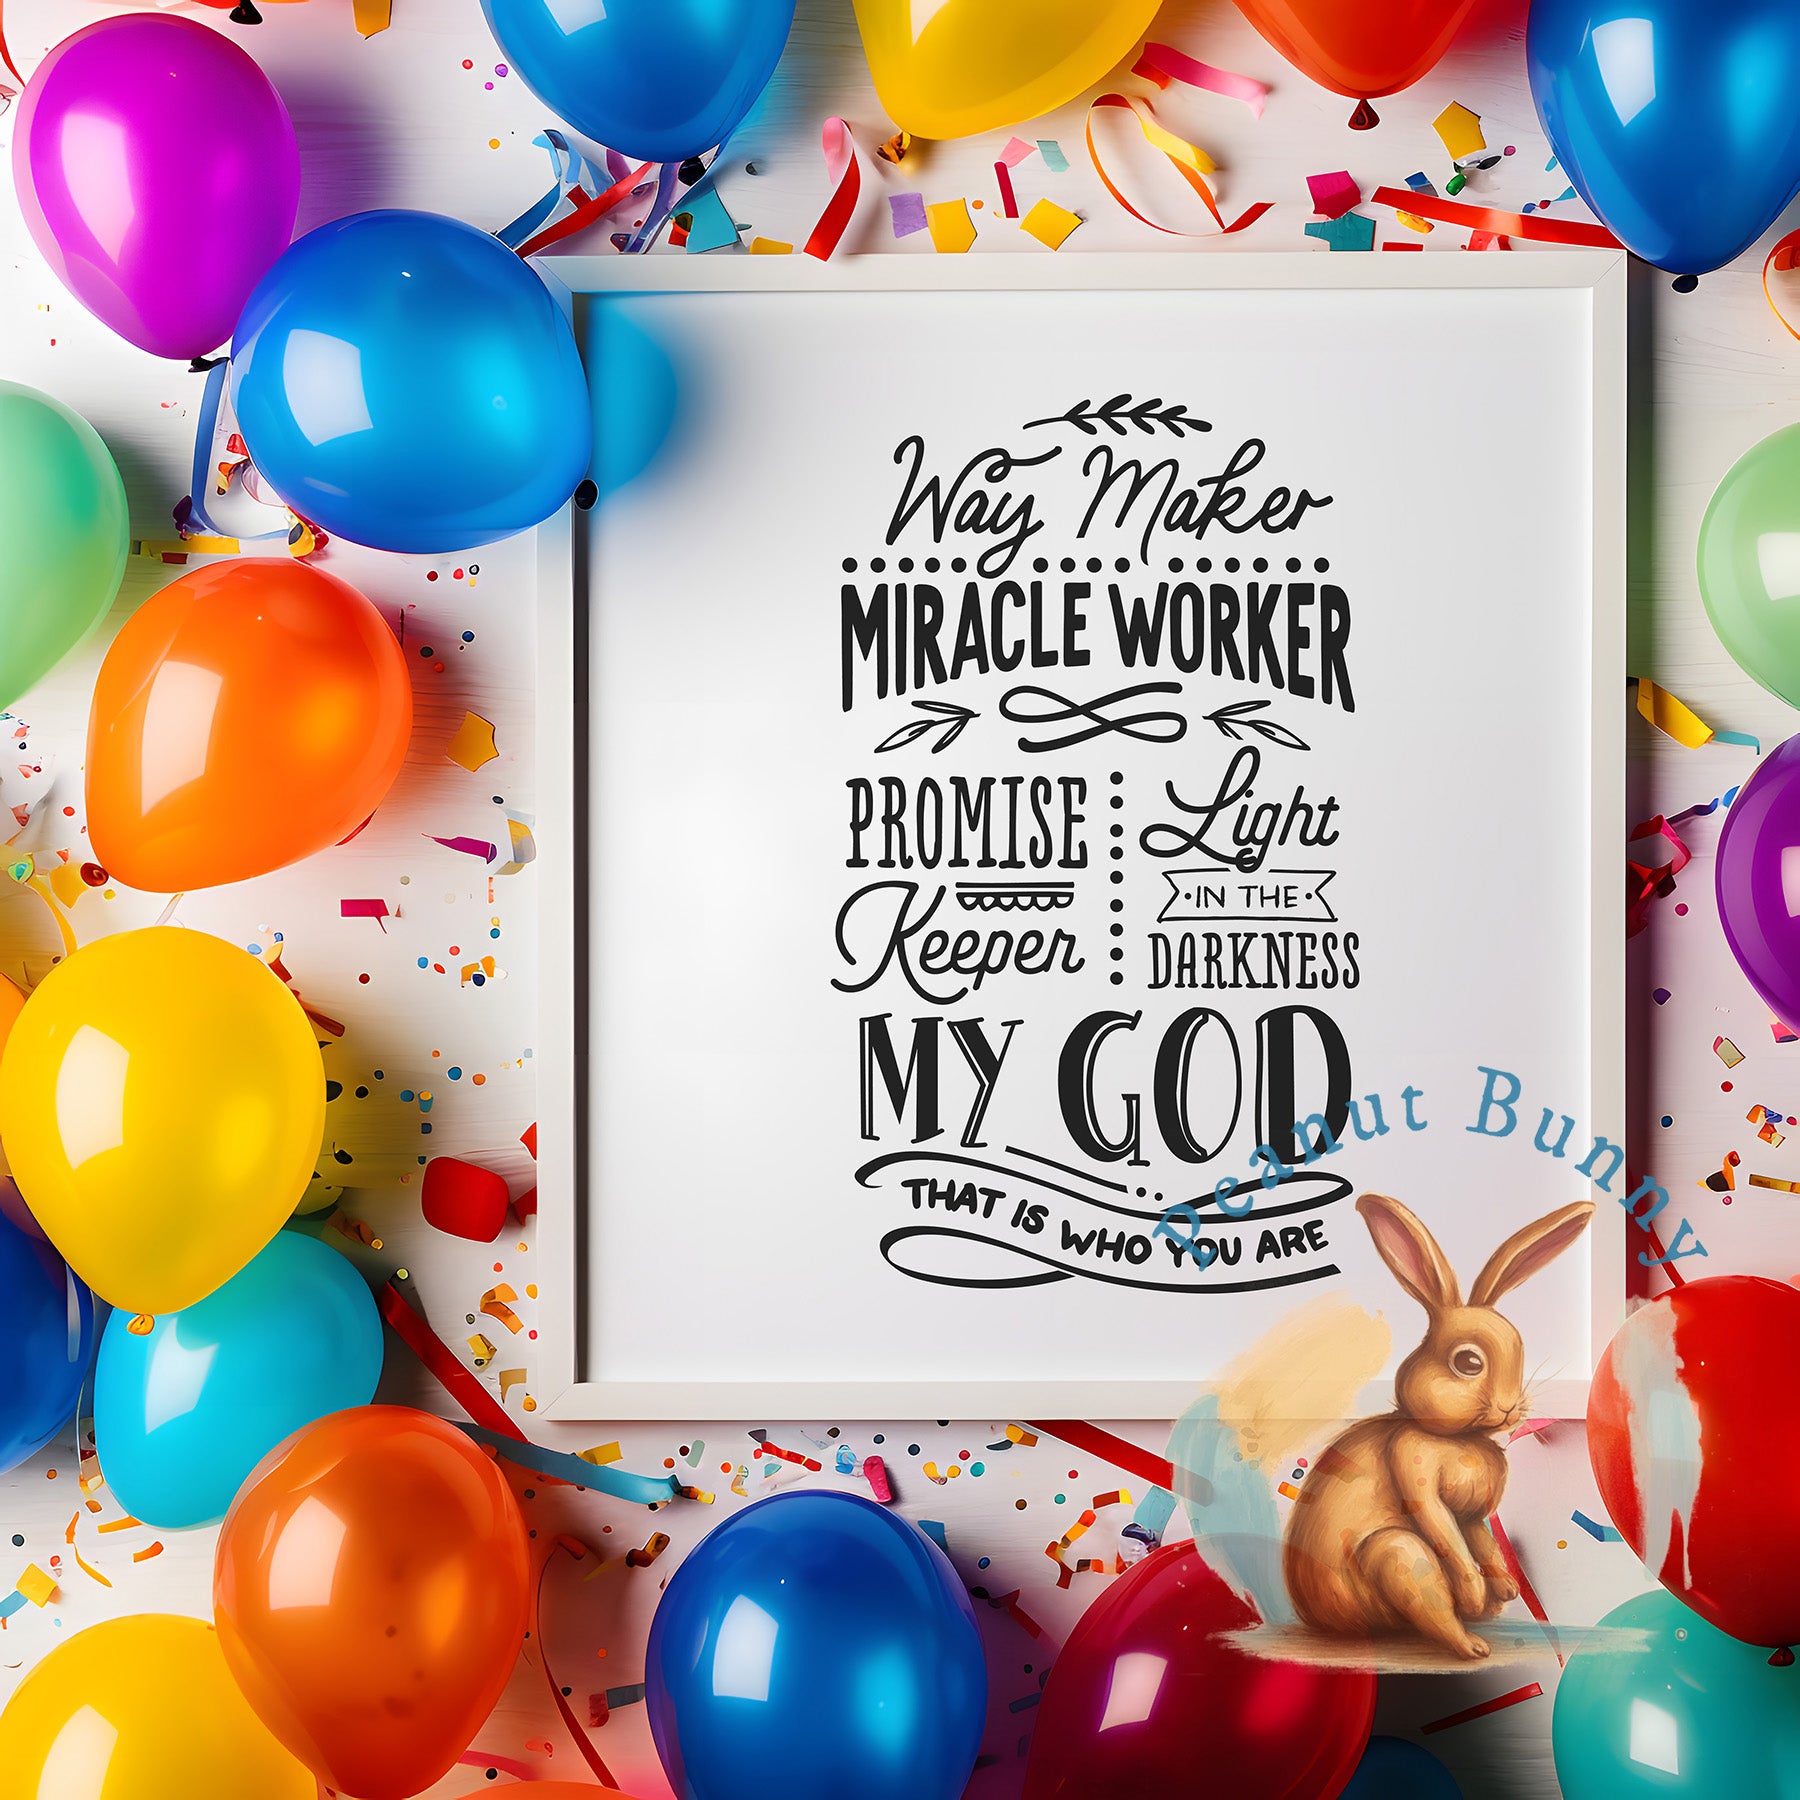 Way Maker
MIRACLE WORKER
PROMISE
Keeper
Light
·IN THE·
DARKNESS
MY GOD
THAT IS WHO YOU ARE
Peanut Bunny